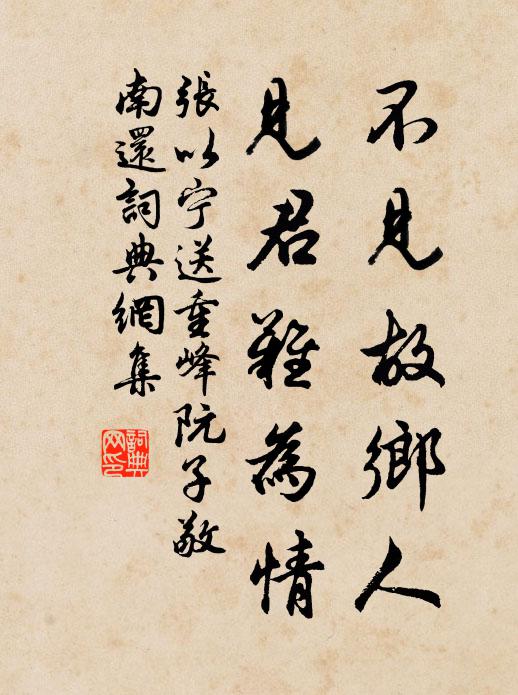 不見故鄉人
見君難為情
張以宁送重峰阮子敬
南還詞典網集
詞典网印